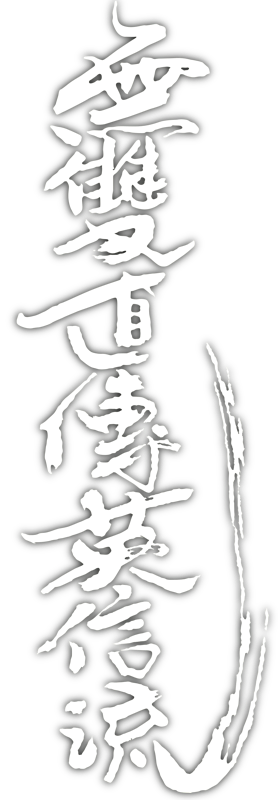 無雙直傳英信流